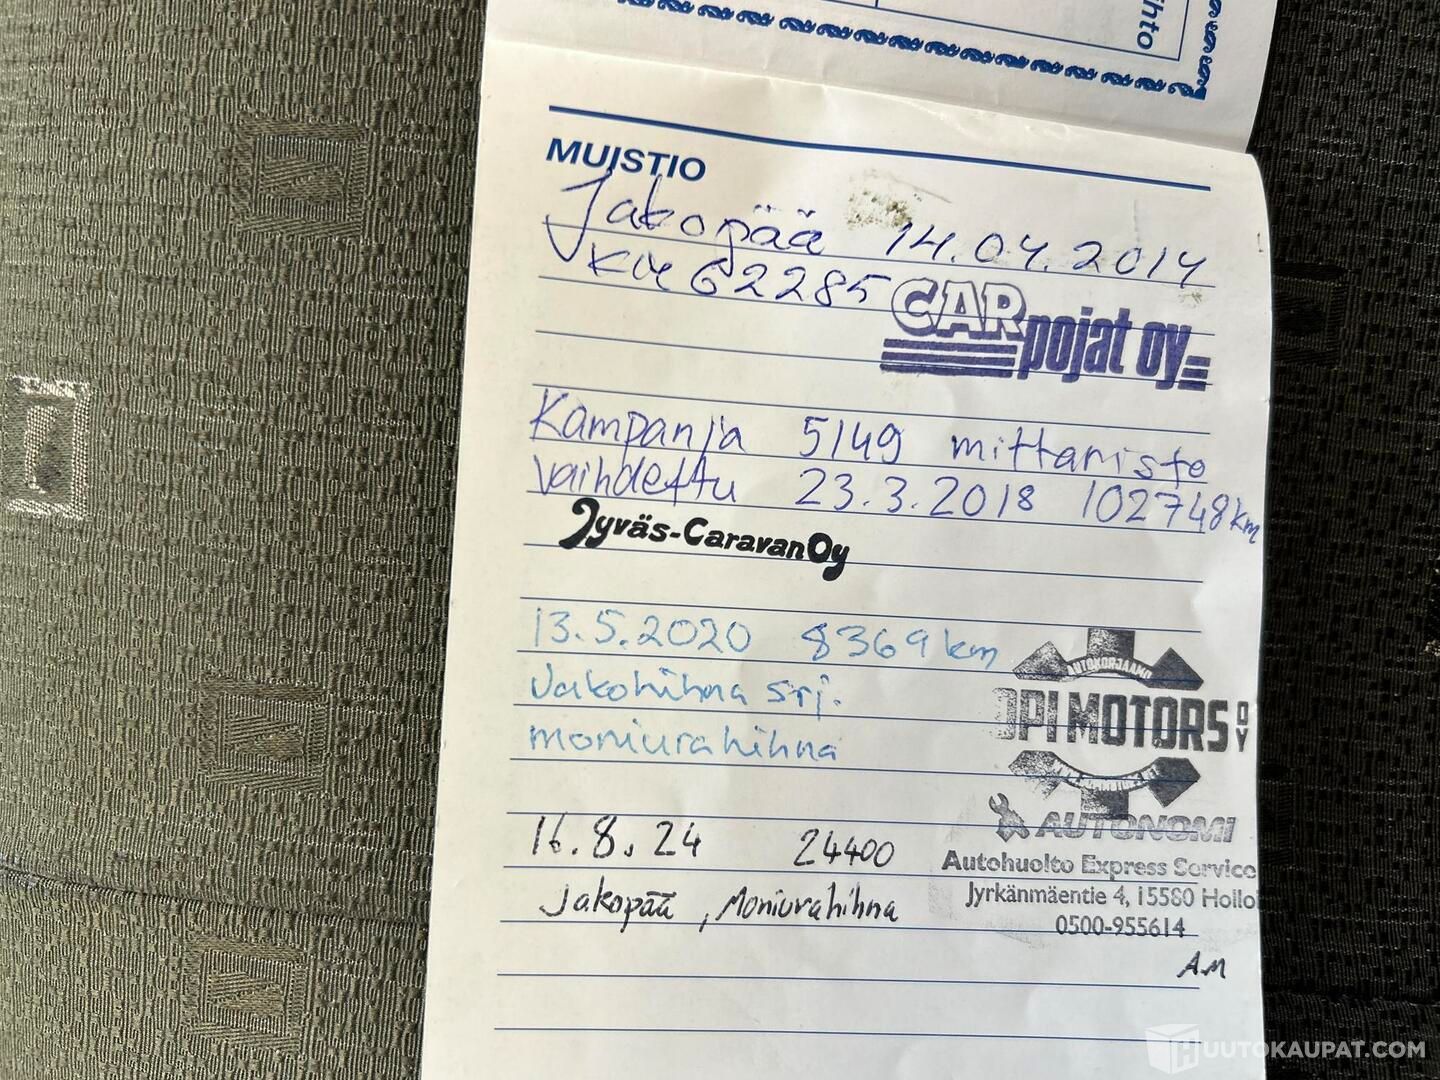 ihto
MUISTIO
Jakopää 14.04.2014
KM 62285
CAR pojat oy
Kampanja 5149 mittaristo
vaihdettu 23.3.2018 102748km
Jyväs-Caravan Oy
13.5.2020 8369 km
Jakohihna srj.
moniurahihna
AUTOKORJAAMO
OPI MOTORS OY
16.8.24 24400
Jakopää, Moniurahihna
AUTONOMI
Autohuolto Express Service
Jyrkänmäentie 4, 15580 Hollo
0500-955614
AM
HUUTOKAUPAT.COM